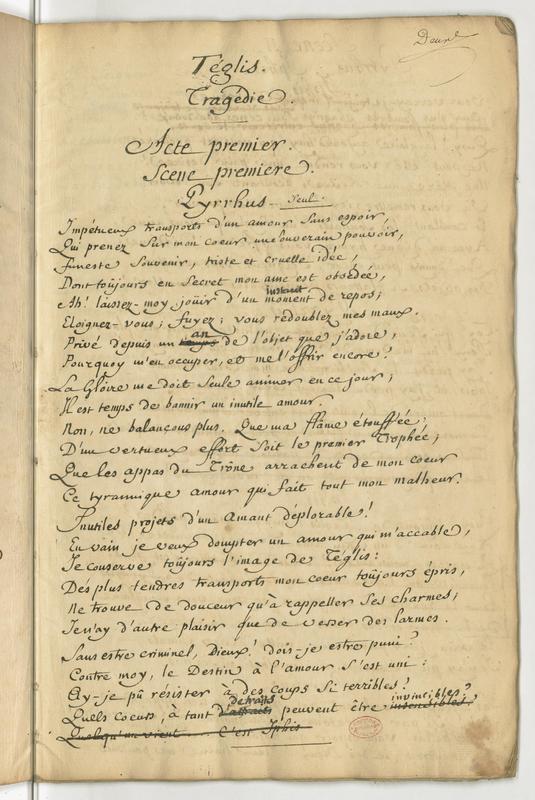 Téglis.
Tragedie.
Acte premier.
Scene premiere.
Pyrrhus seul.
Impétueux transports d'un amour sans espoir,
Qui prenez sur mon coeur un souverain pouvoir,
Funeste souvenir, triste et cruelle idée,
Dont toujours en secret mon ame est obsédée,
instant
Ah! laissez-moy jouir d'un moment de repos;
Eloignez-vous; fuyez; vous redoublez mes maux.
an
Privé depuis un temps de l'objet que j'adore,
Pourquoy m'en occuper, et me l'offrir encore?
La Gloire me doit seule animer en ce jour;
Il est temps de bannir un inutile amour.
Non, ne balançons plus. Que ma flâme étouffée,
D'un vertueux effort soit le premier Trophée;
Que les appas du Trône arrachent de mon coeur
Ce tyrannique amour qui fait tout mon malheur.
Inutiles projets d'un Amant déplorable!
En vain je veux dompter un amour qui m'accable,
Je conserve toûjours l'image de Téglis:
Des plus tendres transports mon coeur toûjours épris,
Ne trouve de douceur qu'à rappeller ses charmes;
Je n'ay d'autre plaisir que de verser des larmes.
Sans estre criminel, Dieux! dois-je estre puni?
Contre moy, le Destin à l'amour s'est uni:
Ay-je pû résister à des coups si terribles?
de traits invincibles?
Quels coeurs, à tant d'attraits peuvent être insensibles?
Quelqu'un vient C'est Iphis